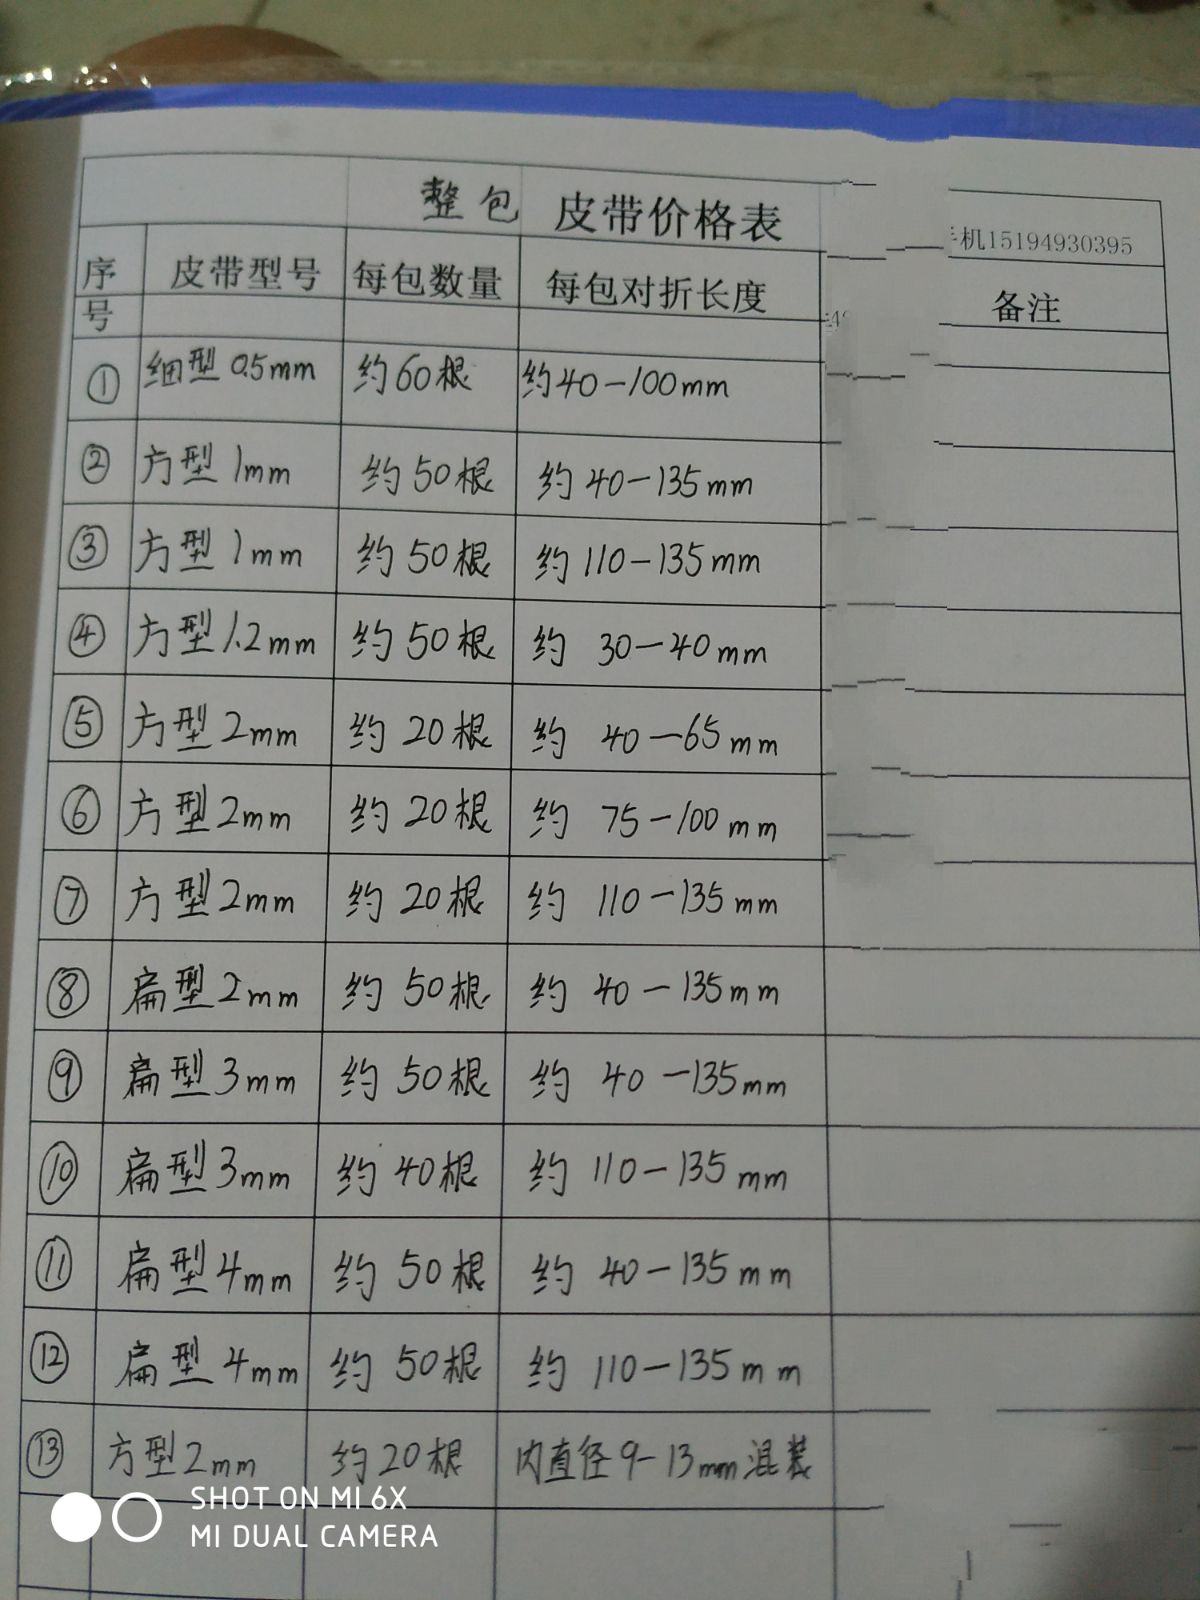 整包 皮带价格表
手机15194930395
序号 皮带型号 每包数量 每包对折长度 备注
① 细型 0.5mm 约60根 约40-100mm
② 方型 1mm 约50根 约40-135mm
③ 方型 1mm 约50根 约110-135mm
④ 方型 1.2mm 约50根 约 30-40mm
⑤ 方型 2mm 约20根 约 40-65mm
⑥ 方型 2mm 约20根 约 75-100mm
⑦ 方型 2mm 约20根 约 110-135mm
⑧ 扁型 2mm 约50根 约 40-135mm
⑨ 扁型 3mm 约50根 约 40-135mm
⑩ 扁型 3mm 约40根 约 110-135mm
⑪ 扁型 4mm 约50根 约 40-135mm
⑫ 扁型 4mm 约50根 约 110-135mm
⑬ 方型 2mm 约20根 内直径9-13mm混装
SHOT ON MI 6X
MI DUAL CAMERA